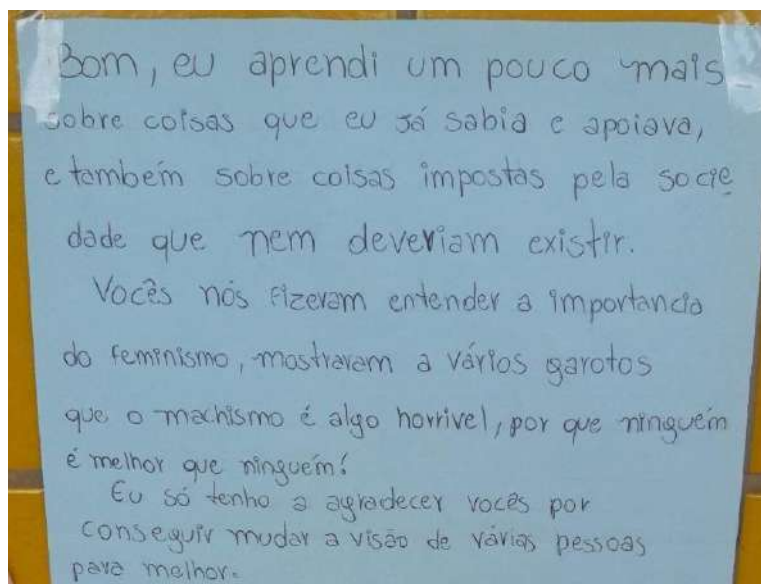 Bom, eu aprendi um pouco mais
sobre coisas que eu já sabia e apoiava,
e tambeḿ sobre coisas impostas pela socie
dade que nem deveriam existir.
Vocês nós fizeram entender a importancia
do feminismo, mostraram a vários garotos
que o machismo é algo horrivel, por que ninguém
é melhor que ninguém!
Eu só tenho a agradecer vocês por
conseguir mudar a visão de várias pessoas
para melhor.